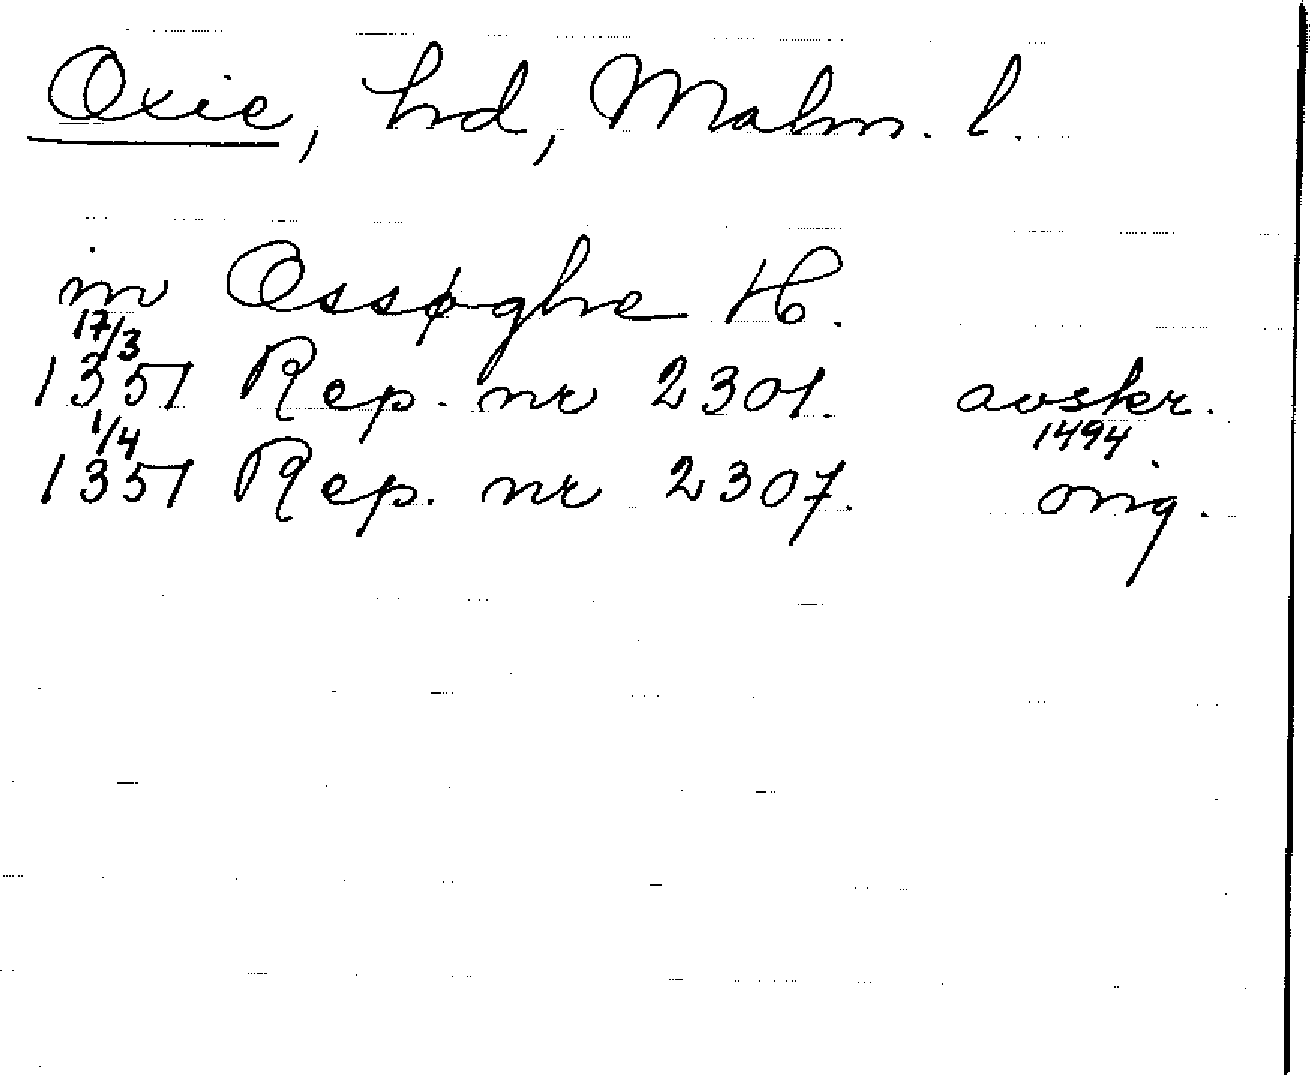 Oxie, hd, Malm. l.
in Ossøghe H.
17/3
1351 Rep. nr 2301. avskr.
1/4 1494.
1351 Rep. nr 2307. orig.